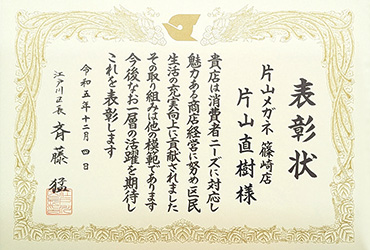 表彰状
片山メガネ 篠崎店
片山直樹様
貴店は消費者ニーズに対応し
魅力ある商店経営に努め区民
生活の充実向上に貢献されました
その取り組みは他の模範であります
今後なお一層の活躍を期待し
これを表彰します
令和五年十二月四日
江戸川区長 斉藤猛